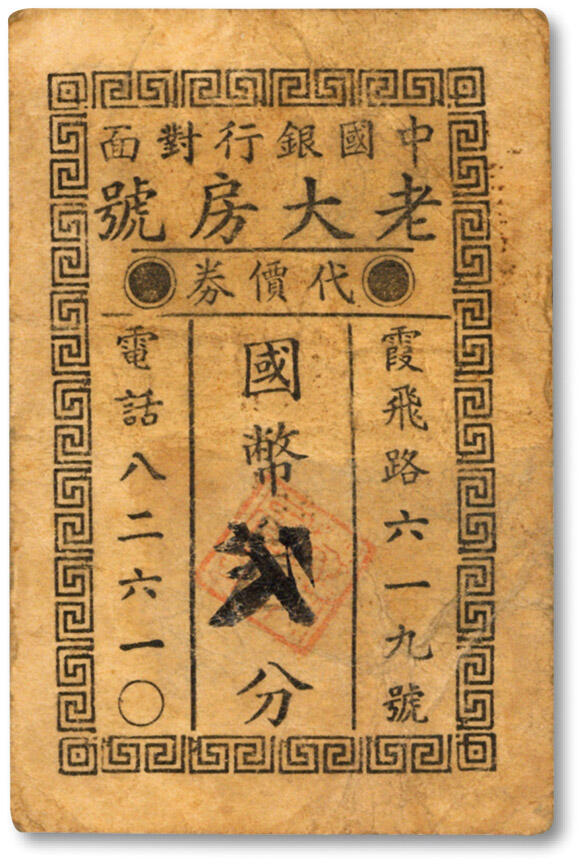 中國銀行對面
老大房號
代價券
霞飛路六一九號
國幣弍分
電話八二六一〇